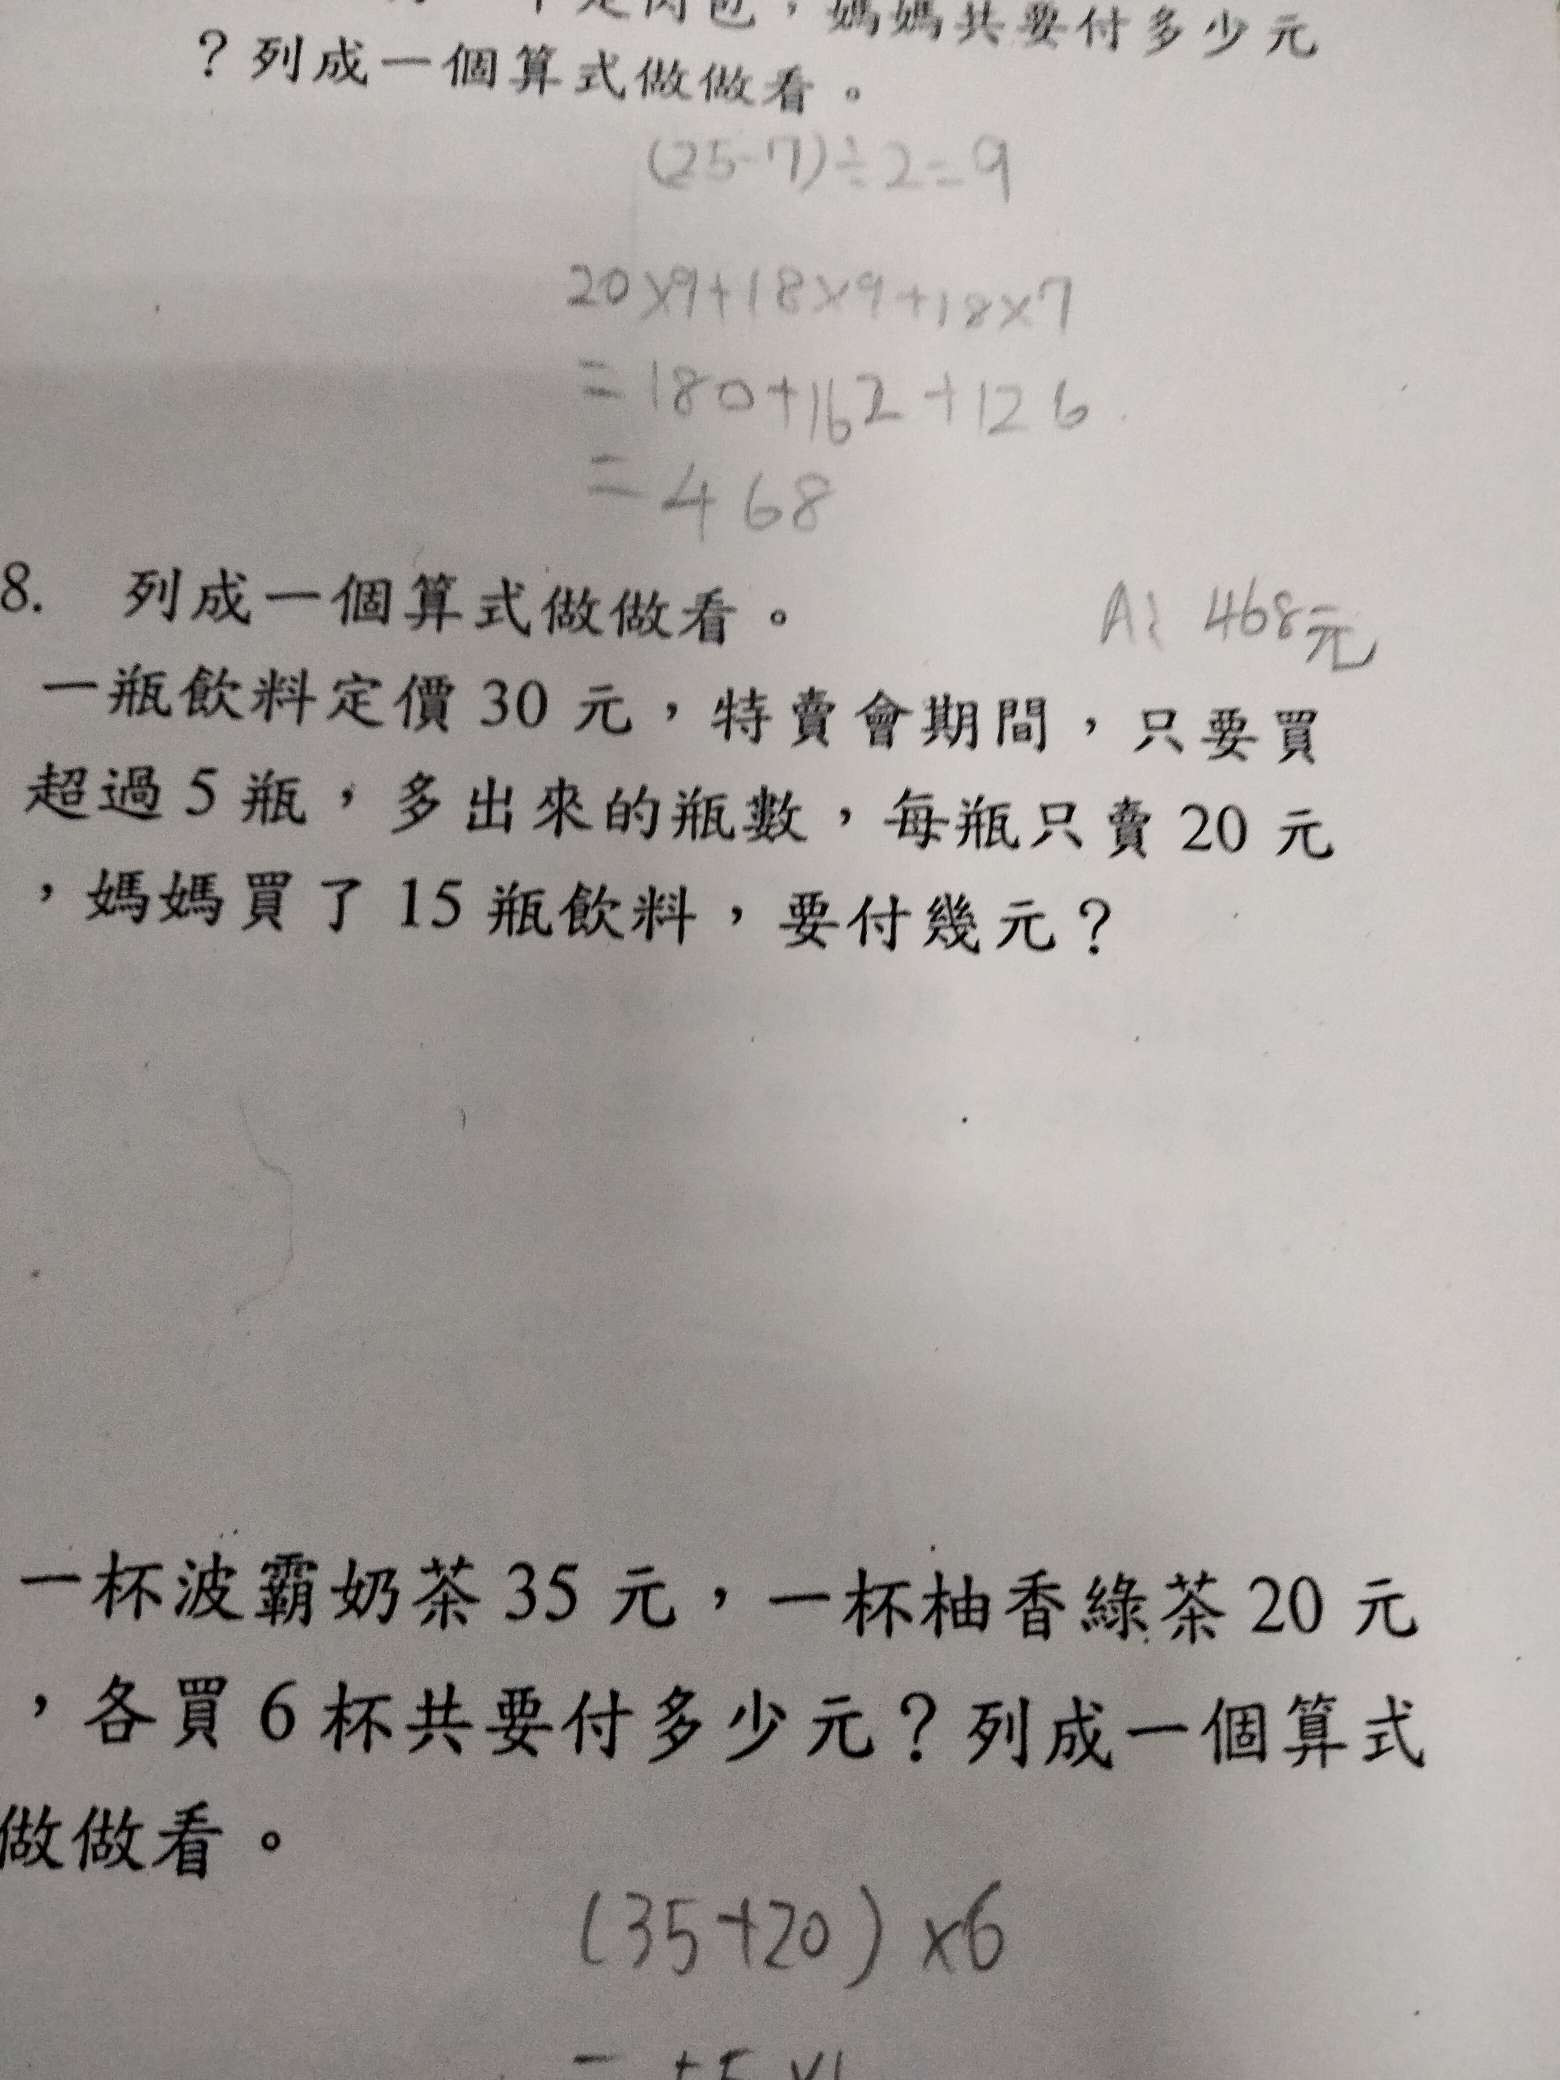 是肉包，媽媽共要付多少元
？列成一個算式做做看。
(25-7)÷2=9
20×9+18×9+18×7
=180+162+126
=468
8. 列成一個算式做做看。
A: 468元
一瓶飲料定價 30 元，特賣會期間，只要買
超過 5 瓶，多出來的瓶數，每瓶只賣 20 元
，媽媽買了 15 瓶飲料，要付幾元？
一杯波霸奶茶 35 元，一杯柚香綠茶 20 元
，各買 6 杯共要付多少元？列成一個算式
做做看。
(35+20)×6